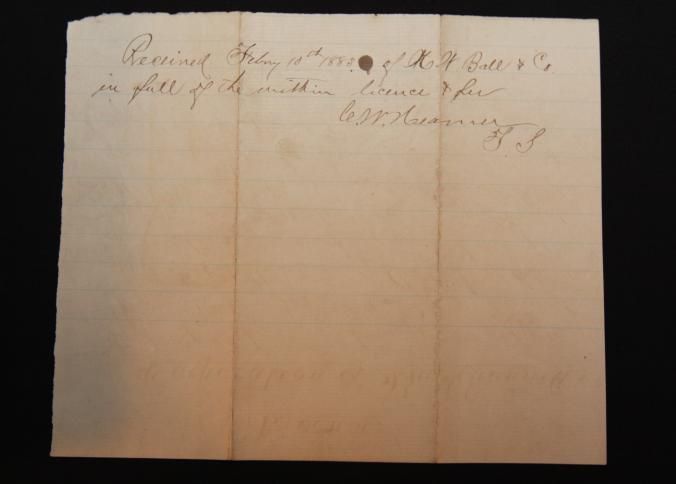 Received Febry 10th 1883 of H W Ball & Co.
in full of the within licence & fee
C. W. Neamer
T. S